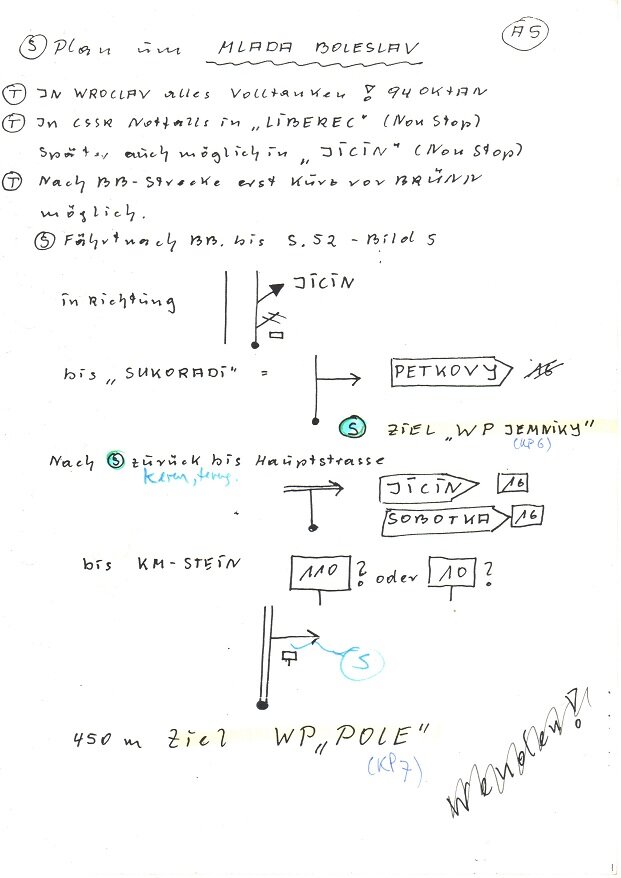 Ⓢ Plan um MLADA BOLESLAV
A5
Ⓣ IN WROCLAV alles Volltanken! 94 OKTAN
Ⓣ In CSSR Notfalls in „LIBEREC" (Non Stop)
Später auch möglich in „JICIN" (Non Stop)
Ⓣ Nach BB-Strecke erst kurz vor BRÜNN
möglich.
Ⓢ Fährt nach BB. bis S.52 - Bild 5
in Richtung
JICIN
bis „SUKORADI" =
PETKOVY
16
Ⓢ ZIEL „WP JEMNIKY"
(KP6)
Nach Ⓢ zurück bis Hauptstrasse
JICIN 16
SOBOTKA 16
bis KM-STEIN 110 ? oder 10 ?
S
450 m Ziel WP „POLE"
(KP7)